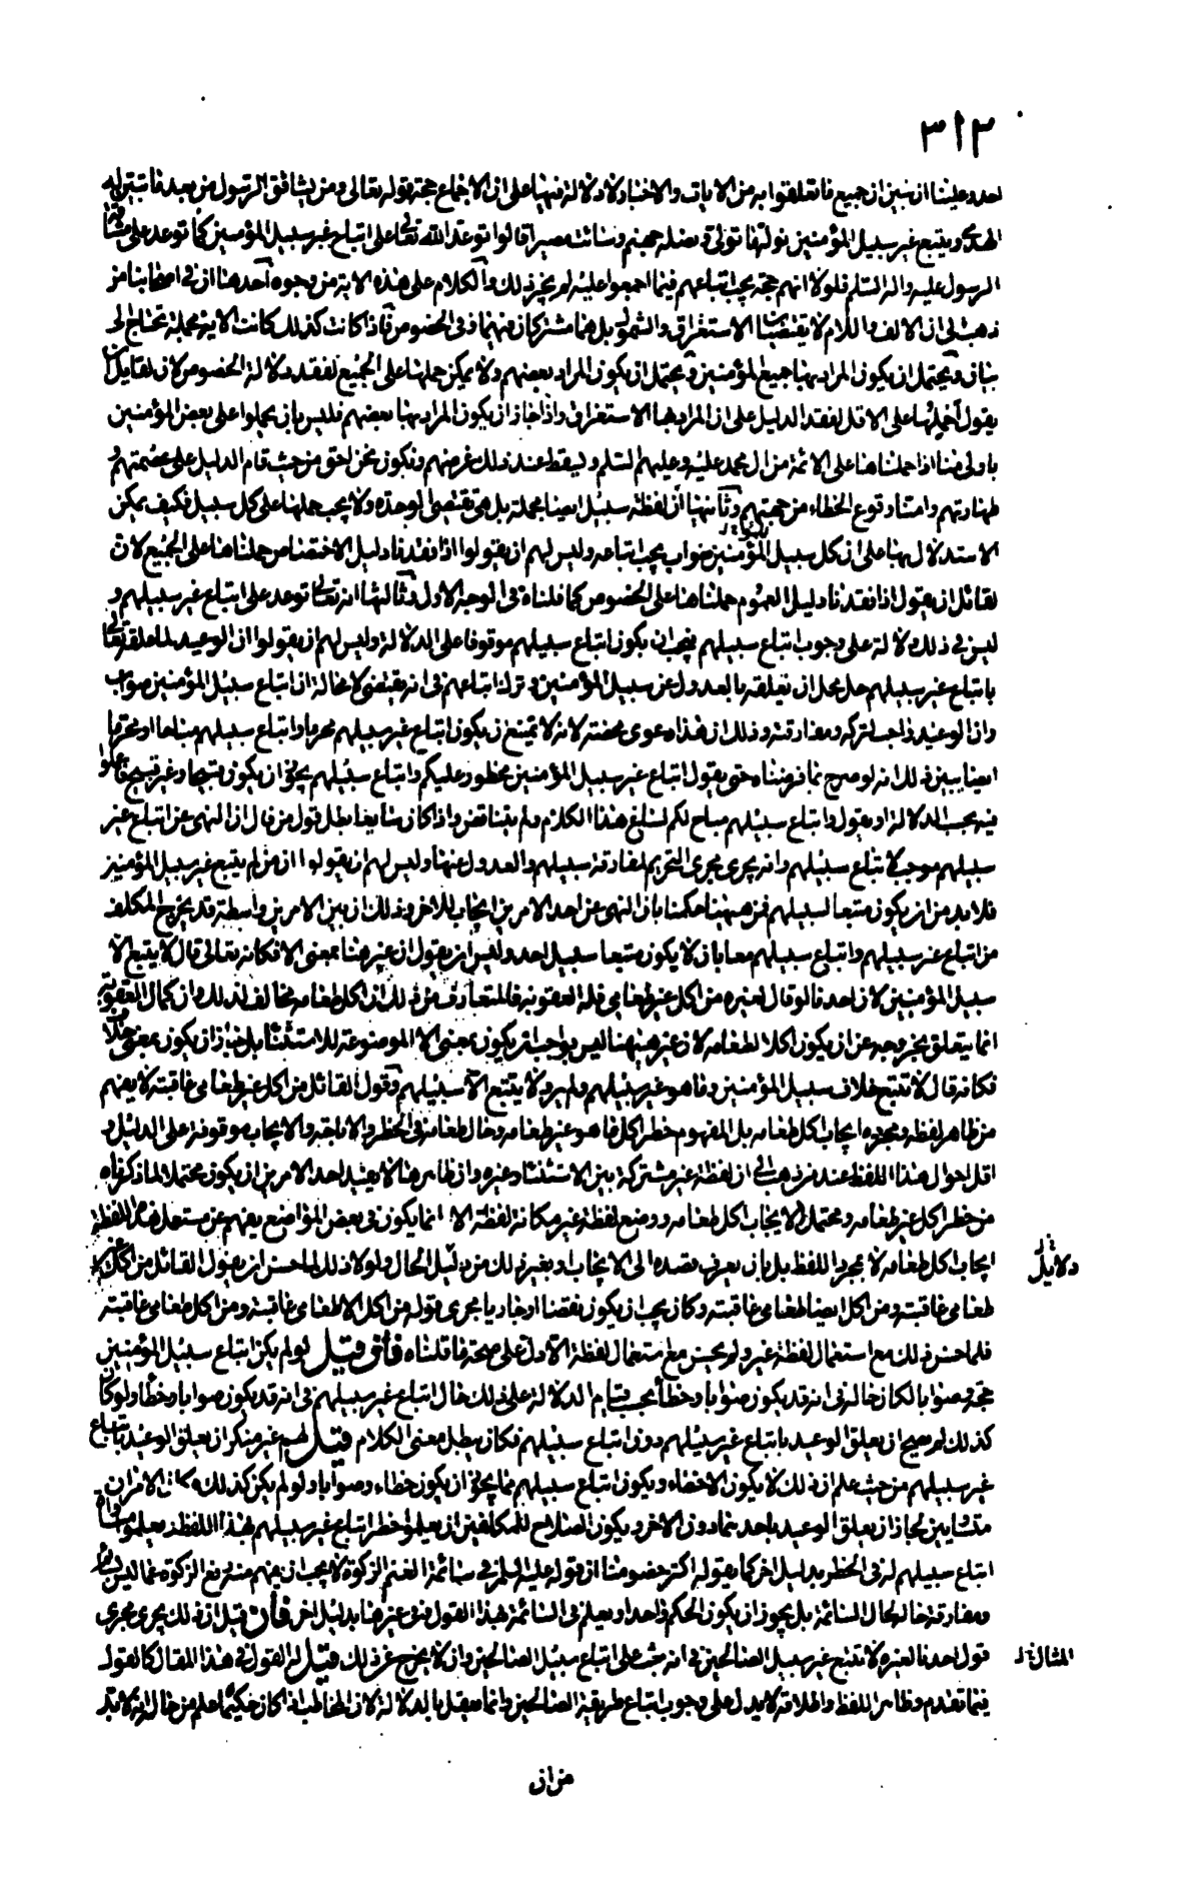 ٣١٣
احد وعلينا ان نبين ان جميع ما تعلقوا به من الايات والاخبار لا دلالة فيها على ان الاجماع حجة قوله تعالى ومن يشاقق الرسول من بعد ما تبين له
الهدى ويتبع غير سبيل المؤمنين نوله ما تولى ونصله جهنم وسائت مصيرا قالوا توعد الله تعالى على اتباع غير سبيل المؤمنين كما توعد على مشاقة
الرسول عليه واله السلم فلولا انهم حجة يجب اتباعهم فيما اجمعوا عليه لم يجز ذلك والكلام على هذه الاية من وجوه احدها ان في اصحابنا من
ذهب الى ان الالف واللام لا يقتضيان الاستغراق والشمول بل هما مشتركان فيهما وفي الخصوص فاذا كانت كذلك كانت الاية مجملة تحتاج الى
بيان ويحتمل ان يكون المراد بها جميع المؤمنين ويحتمل ان يكون المراد بعضهم ولا يمكن حملها على الجميع لفقد دلالة الخصوص لان لقايل ان
يقول احملها على الاقل لفقد الدليل على ان المراد بها الاستغراق واذا جاز ان يكون المراد بها بعضهم فليس بان يحملوا على بعض المؤمنين
باولى منا اذا حملناها على الائمة من ال محمد عليه وعليهم السلم وليقط عند ذلك غرضهم ونكون نحن احق من حيث قام الدليل على عصمتهم و
طهارتهم وامتناع وقوع الخطاء من جهتهم وثانيها ان لفظة سبيل ايضا مجملة بل هي تقتضي الوحدة ولا يجب حملها على كل سبيل فكيف يمكن
الاستدلال بها على ان كل سبيل المؤمنين صواب يجب اتباعه وليس لهم ان يقولوا اذا فقدنا دليل الاختصاص حملناها على الجميع لان
لقائل ان يقول اذا فقدنا دليل العموم حملناها على الخصوص كما قلناه في الوجه الاول وثالثها انه تعالى توعد على اتباع غير سبيلهم و
ليس في ذلك دلالة على وجوب اتباع سبيلهم فيجب ان يكون اتباع سبيلهم موقوفا على الدلالة وليس لهم ان يقولوا ان الوعيد لما علقه تعالى
باتباع غير سبيلهم حل محل ان يعلقه بالعدول عن سبيل المؤمنين وترك اتباعهم في انه يقتضي لا محالة ان اتباع سبيل المؤمنين صواب
وان الوعيد واجب لتركه ومفارقته وذلك ان هذه دعوى محضة لانه لا يمتنع ان يكون اتباع غير سبيلهم محرما واتباع سبيلهم مباحا او محرما
ايضا يبين ذلك انه لو صرح بما فرضناه حتى يقول اتباع غير سبيل المؤمنين محظور عليكم واتباع سبيلهم يجوز ان يكون قبيحا وغير قبيح فاعملوا
فيه بحسب الدلالة او يقول واتباع سبيلهم مباح لكم لساغ هذا الكلام ولم يتناقض واذا كان شايعا بطل قول من قال ان النهى عن اتباع غير
سبيلهم موجب لاتباع سبيلهم وانه يجرى مجرى التحريم لمفارقة سبيلهم والعدول عنها وليس لهم ان يقولوا ان من لم يتبع غير سبيل المؤمنين
فلا بد من ان يكون متبعا لسبيلهم فمن هيهنا حكمنا بان النهى عن احد الامرين ايجاب للاخر وذلك ان بين الامرين واسطة قد يخرج المكلف
من اتباع غير سبيلهم واتباع سبيلهم معا بان لا يكون متبعا سبيل احد وليس ان يقول ان غير هنا بمعنى الا فكانه تعالى قال لا يتبع الا
سبيل المؤمنين لان احدنا لو قال لغيره من اكل غير طعامي فله العقوبة فالمتعارف من ذلك ان اكل طعامه مخالف لذلك وان كمال العقوبة
انما يتعلق بخروجه عن ان يكون اكلا لطعامه لان غير هيهنا ليس بواجب ان يكون بمعنى الا الموضوعة للاستثناء بل جاز ان يكون بمعنى خلاف
فكانه قال لا تتبع خلاف سبيل المؤمنين وما هو غير سبيلهم ولم يرد لا يتبع الا سبيلهم وقول القائل من اكل غير طعامي عاقبته لا يفهم
من ظاهر لفظه ومجرده ايجاب اكل طعامه بل المفهوم حظر اكل ما هو غير طعامه وحال طعامه في الحظر والاباحة والايجاب موقوفة على الدليل و
اقل احوال هذا اللفظ عند من ذهب الى ان لفظة غير مشتركة بين الاستثناء وغيره وان ظاهرها لا يفيد احد الامرين ان يكون محتملا لما ذكرناه
من حظر اكل غير طعامه ومحتمل لايجاب اكل طعامه ووضع لفظة غير مكان لفظة الا انما يكون في بعض المواضع يفهم عن مستعمل هذه اللفظة
ايجاب اكل طعامه لا بمجرد اللفظ بل بان يعرف قصده الى الايجاب او بغير ذلك من دليل الحال ولولا ذلك لما حسن ان يقول القائل من اكل غير
طعامي عاقبته ومن اكل ايضا طعامي عاقبته وكان يجب ان يكون نقضا او جاريا مجرى قوله من اكل الا طعامي عاقبته ومن اكل طعامي عاقبته
فلما حسن ذلك مع استعمال لفظة غير ولم يحسن مع استعمال لفظة الا دل على صحة ما قلناه فان قيل لو لم يكن اتباع سبيل المؤمنين
حجة وصوابا لكان حاله في انه قد يكون صوابا وخطأ بحسب قيام الدلالة على ذلك حال اتباع غير سبيلهم في انه قد يكون صوابا وخطأ ولو كان
كذلك لم يصح ان يعلق الوعيد باتباع غير سبيلهم دون اتباع سبيلهم فكان يبطل معنى الكلام قيل لهم غير منكر ان يعلق الوعيد باتباع
غير سبيلهم من حيث علم ان ذلك لا يكون الا خطاء ويكون اتباع سبيلهم مما يجوز ان يكون خطاء وصوابا ولو لم يكن كذلك وكان الامران
متساويين لجاز ان يعلق الوعيد باحدهما دون الاخر ويكون الصلاح للمكلفين ان يعلموا حظر اتباع غير سبيلهم بهذا اللفظ ويعلموا مساواة
اتباع سبيلهم له في الحظر بدليل اخر كما يقوله اكثر خصومنا ان قوله عليه السلم في سائمة الغنم الزكوة لا يجب ان يفهم منه رفع الزكوة عما ليس بسائم
ومفارقة حاله لحال السائمة بل يجوز ان يكون الحكم واحدا ويعلم في السائمة بهذا القول وفي غيرها بدليل اخر فان قيل ان ذلك يجرى مجرى
قول احدنا لغيره لا تتبع غير سبيل الصالحين في انه حث على اتباع سبيل الصالحين وان لا يخرج عن ذلك قيل له القول في هذا المقال كالقول
فيما تقدم وظاهر اللفظ واطلاقه لا يدل على وجوب اتباع طريقة الصالحين وانما يعقل بالدلالة لان المخاطب اذا كان حكيما علم من حاله انه لا بد
دلايل
المثال
من ان